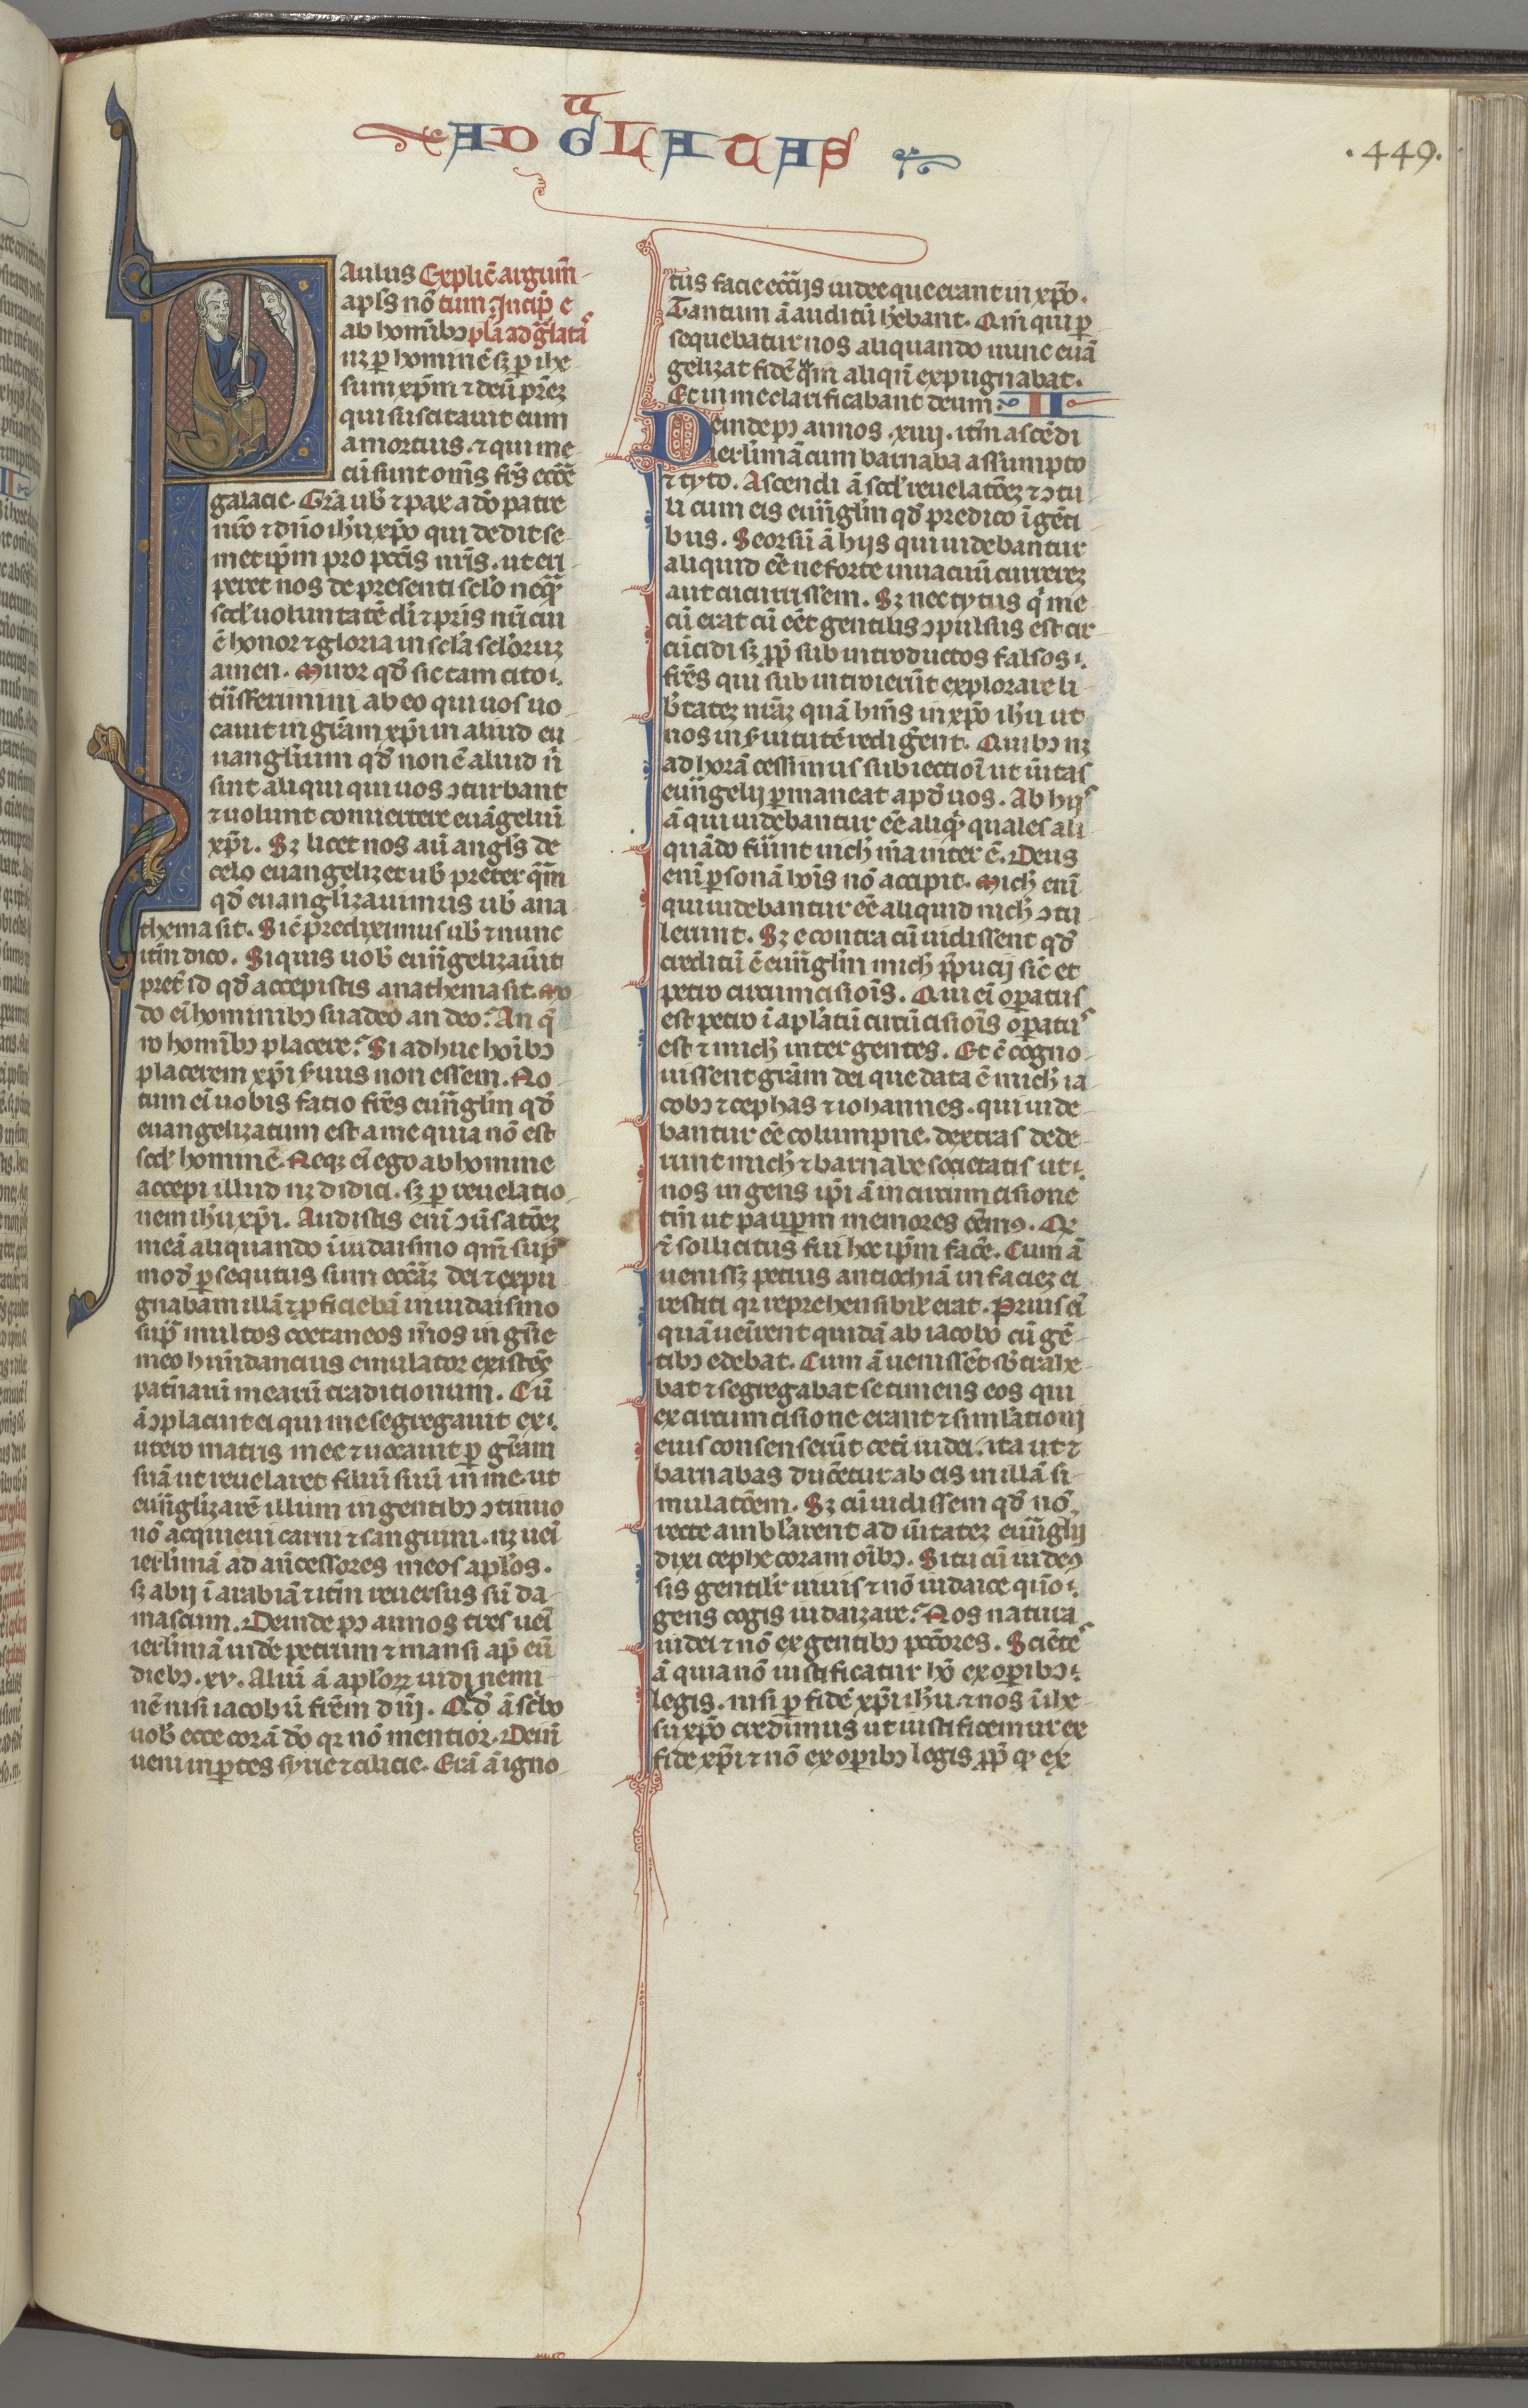 AD GaLATAS
·449·
Paulus Explic̄ argum̄
apl̄s nō tum. Incip̄ e
ab homībꝫ pl̄a ad g̃lataˢ
nꝫ ꝑ hominē sꝫ ꝑ ihe
sum xp̄m ⁊ deū pr̄eꝫ
qui suscitauit eum
a mortuis. ⁊ qui me
cū sunt om̄s fr̄s ecc̄e
galacie. Gr̄a uob̄ ⁊ pax a dō patre
nr̄o ⁊ dn̄o ih̄u xp̄o qui dedit se
metip̄m pro pcc̄is nr̄is. ut eri
peret nos de presenti sc̄lo neq̃
scd̄ uoluntatē di ⁊ pr̄is nr̄i cui
ē honor ⁊ gloria in sc̄la sc̄loruꝫ
amen. Miror qd̄ sic tam cito .
tn̄sferimini ab eo qui uos uo
cauit in gr̄am xp̄i in aliud eu
uanglium qd̄ non ē aliud n̄
sint aliqui qui uos ↄturbant
⁊ uolunt conuertere euāgeliū
xp̄i. Sꝫ licet nos aū angl̄s de
celo euangelizet uob̄ preter q̄m
qd̄ euanglizauimus uob̄ ana
thema sit. Sic̄ prediximus uob̄ ⁊ nunc
itm̄ dico. Siquis uob̄ euūgelizau̅it
pret̄ id qd̄ accepistis anathema sit. Mo
do eī hominibꝫ suadeo an deo? An q̄
ro homībꝫ placere? Si adhuc hoībꝫ
placerem xp̄i ẜuus non essem. No
tum eī uobis facio fr̄es euūglm̄ qd̄
euangelizatum est a me quia nō est
scd̄ hominē. Neqꝫ eī ego ab homine
accepi illud nꝫ didici. sꝫ ꝑ reuelatio
nem ih̄u xp̄i. Audistis eni ↄūsatōeꝫ
meā aliquando ī iudaismo qm̄ sup̄ᵃ
mod̄ ꝑsequtus sum ecc̄aꝫ dei ⁊ expu
gnabam illā ⁊ ꝓficiebā in iudaismo
sup̄ᵃ multos coetaneos m̄os in gn̄e
meo hun̄dancius emulator existēs
patn̄arū mearū traditionum. Cū
ā ↄplacuit ei qui me segregauit ex .
utero matris mee ⁊ uocauit ꝑ gr̄am
suā ut reuelaret filiū suū in me. ut
euūglizarē illum in gentibꝫ ↄtinuo
nō acquieui carni ⁊ sanguini. nꝫ uei
ierlimā ad an̄cessores meos apl̄os.
sꝫ abij ī arabiā ⁊ itm̄ reuersus sū da
mascum. Deinde pꝰ annos tres uei
ierlimā uidē petrum ⁊ mansi ap̄ eū
diebꝫ. xv. Aliū ā aplorꝝ uidi nemi
nē nisi iacobū fr̄em dn̄i. Qd̄ ā sc̄bo
uob̄ ecce corā dō qꝛ nō mentior. Dein̄
ueni in ꝑtes syrie ⁊ cilicie. Erā ā igno
tus facie ecc̄ijs iudee que erant in xp̄o.
Tantum ā auditū hebant. Qm̄ qui ꝑ
sequebatur nos aliquando nunc euā
gelizat fidē q̄m aliqn̄ expugnabat.
Et in me clarificabant deum. II
Deinde pꝰ annos. xiiij. itm̄ ascēdi
ierlimā cum barnaba assumpto
⁊ tyto. Ascendi ā scd̄ reuelatōeꝫ ⁊ ↄtu
li cum eis euūglm̄ qd̄ predico ī gēti
bus. Seorsū ā hijs qui uidebantur
aliquid eē ne forte in uacuū currereꝫ
aut cucurrissem. Sꝫ nec tytus q̄ me
cū erat cū eēt gentilis ↄpulsus est cir
cūcidi sꝫ ꝓp̄ subintroductos falsos .
fr̄es qui subintroierūt explorare li
b̄tateꝫ nr̄aꝫ quā hm̄s in xp̄o ih̄u ut
nos in ẜuitutē redigēent. Quibꝫ nꝫ
ad horā cessimus subiectioī ut ūitas
euūgelij ꝑmaneat apd̄ uos. Ab hijˢ
ā qui uidebantur eē aliq̄ᵈ quales ali
quādo fūint nich̄ m̄a inter ē. Deus
eni ꝑsonā hoīs nō accipit. Mich̄ eni
qui uidebantur eē aliquid nich̄ ↄtu
lerunt. Sꝫ e contra cū uidissent qd̄
creditū ē euūglm̄ mich̄ p̄pucij sic̄ et
petro circumcisiois. Qui eī oꝑatus
est petro ī aplatū circūcisiois oꝑatuˢ
est ⁊ mich̄ inter gentes. Et ē cogno
uissent gr̄am dei que data ē mich̄ ia
cobꝫ ⁊ cephas ⁊ iohannes. qui uide
bantur eē columpne. dextras dede
runt mich̄ ⁊ barnabe societatis ut .
nos in gens ip̄i ā in circumcisione
tm̄ ut pauꝑm memores eēmꝰ. Qꝛ
⁊̄ sollicitus fui hoc ip̄m facē. Cum ā
uenissꝫ petrus antiochiā in facieꝫ ei
restiti qꝛ reprehensibil̄ erat. Prius eī
quā ueīrent quidā ab iacobo cū gē
tibꝫ edebat. Cum ā uenissēt sb̄trahe
bat ⁊ segregabat se timens eos qui
ex circumcisione erant ⁊ simlationi
eius consenserūt ceti iudei. ita ut ⁊
barnabas ducēetur ab eis in illā si
mulatōem. Sꝫ cū uidissem qd̄ nō
recte amblarent ad ūitateꝫ euūglij
dixi cephe coram oībꝫ. Si tu cū iudeꝰ
sis gentilr̄ uiuis ⁊ nō iudaice quō .
gens cogis iudaizare? Nos natura
iudei ⁊ nō ex gentibꝫ pcc̄ores. Sciēteˢ
ā quia nō iustificatur hō ex oꝑibꝫ .
legis. nisi ꝑ fidē xp̄i ih̄u ⁊ nos ī ihe
su xp̄o credimus ut iustificemur ex
fide xp̄i ⁊ nō ex oꝑibꝫ legis ꝓp̄ qᵈ ex